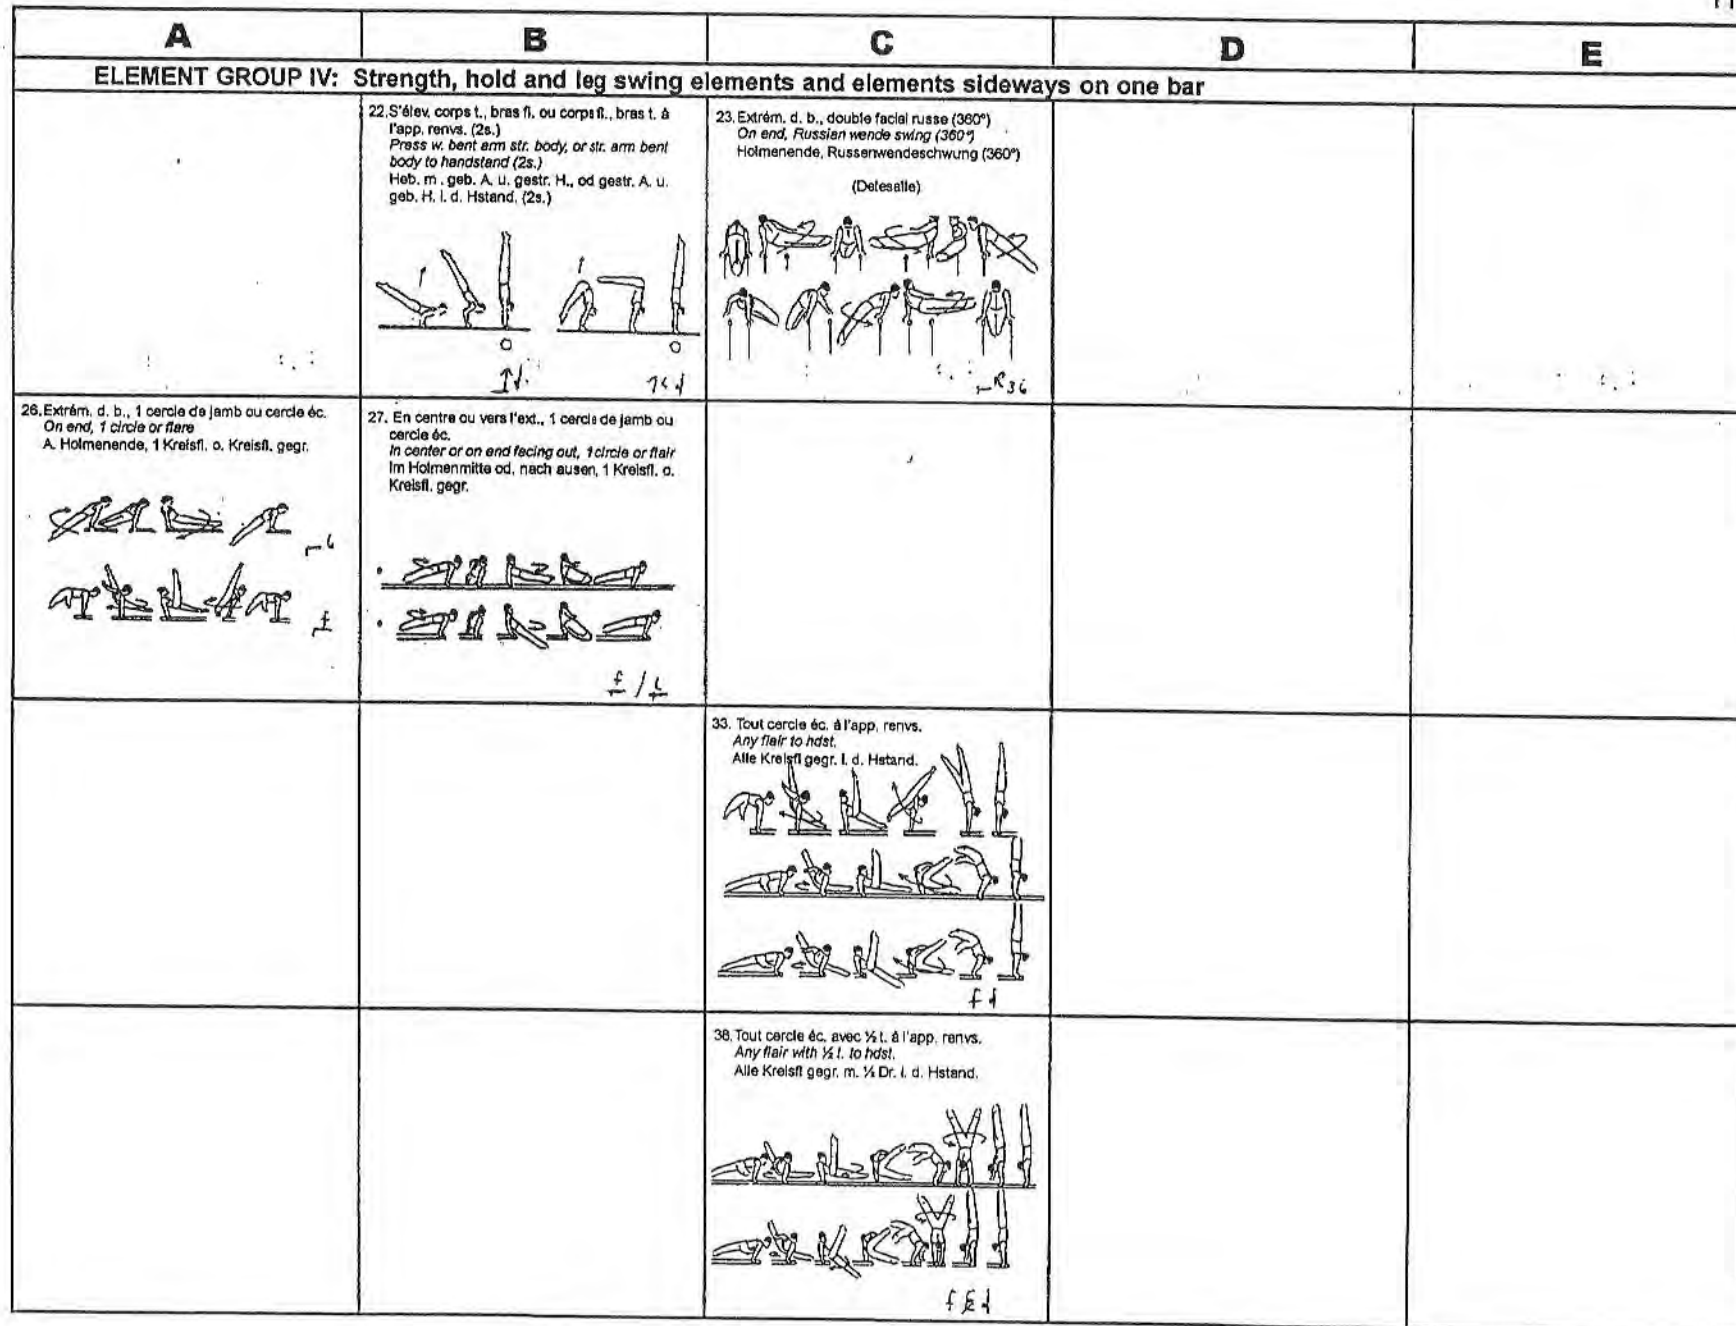 A B C D E
ELEMENT GROUP IV: Strength, hold and leg swing elements and elements sideways on one bar
22.S'élev. corps t., bras fl. ou corps fl., bras t. à
l'app. renvs. (2s.)
Press w. bent arm str. body, or str. arm bent
body to handstand (2s.)
Heb. m . geb. A. u. gestr. H., od gestr. A. u.
geb. H. i. d. Hstand. (2s.)
23.Extrém. d. b., double facial russe (360°)
On end, Russian wende swing (360°)
Holmenende, Russenwendeschwung (360°)
(Detesalle)
R36
26.Extrém. d. b., 1 cercle de jamb ou cercle éc.
On end, 1 circle or flare
A. Holmenende, 1 Kreisfl. o. Kreisfl. gegr.
27. En centre ou vers l'ext., 1 cercle de jamb ou
cercle éc.
In center or on end facing out, 1 circle or flair
Im Holmenmitte od. nach ausen, 1 Kreisfl. o.
Kreisfl. gegr.
33. Tout cercle éc. à l'app. renvs.
Any flair to hdst.
Alle Kreisfl gegr. i. d. Hstand.
38.Tout cercle éc. avec ½ t. à l'app. renvs.
Any flair with ½ t. to hdst.
Alle Kreisfl gegr. m. ½ Dr. i. d. Hstand.